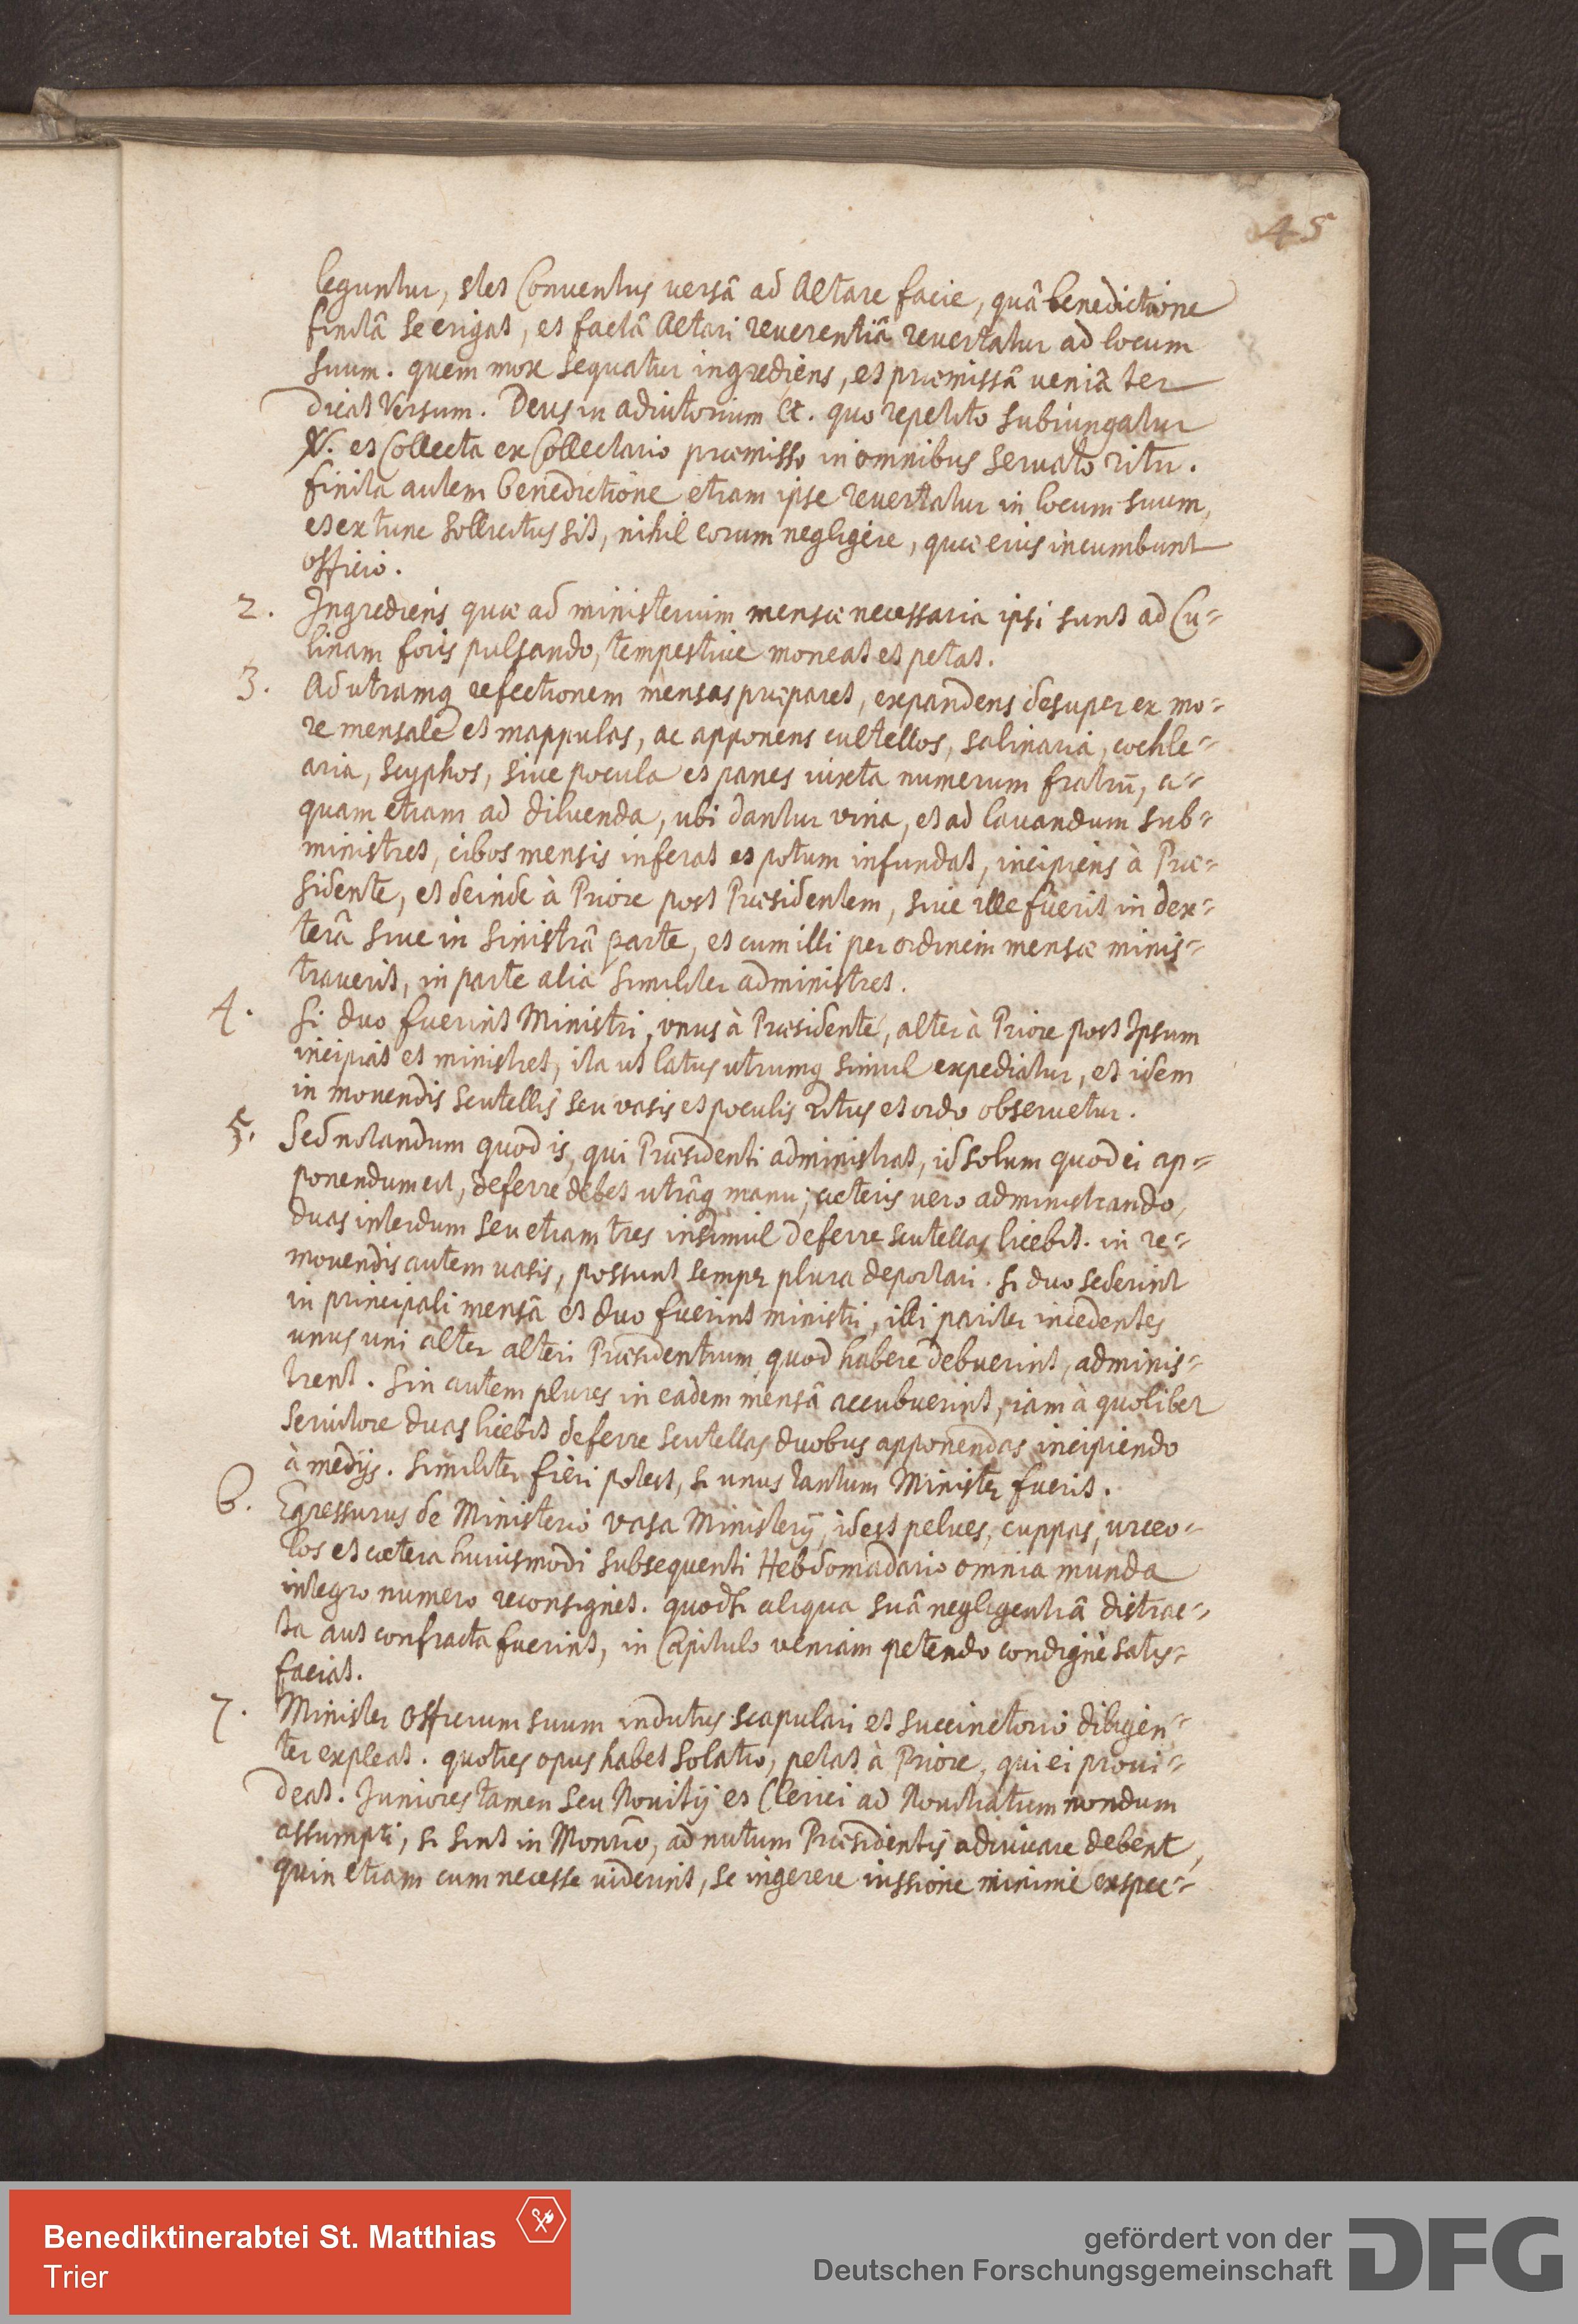 45
leguntur, stet Conventus versâ ad Altare facie, quâ benedictione
finitâ se erigat, et factâ Altari reverentiâ revertatur ad locum
suum. quem mox sequatur ingrediens, et præmissâ veniâ ter
dicat Versum. Deus in adiutorium &c. quo repetito subiungatur
℣. et Collecta ex Collectario præmisso in omnibus servato ritu.
finita autem benedictione etiam ipse revertatur in locum suum,
et ex tunc sollicitus sit, nihil eorum negligere, quæ eius incumbunt
officio.
2. Ingrediens quæ ad ministerium mensæ necessaria ipsi sunt ad Cu=
linam foris pulsando, tempestive moneat et petat.
3. Ad utramq refectionem mensas præparet, expandens desuper ex mo=
re mensale et mappulas, ac apponens cultellos, salinaria, cochle=
aria, scyphos, sive pocula et panes iuxta numerum fratrū, a=
quam etiam ad diluenda, ubi dantur vina, et ad lavandum sub=
ministret, cibos mensis inferat et potum infundat, incipiens à Præ=
sidente, et deinde à Priore post Præsidentem, sive ille fuerit in dex=
terâ sive in sinistrâ parte, et cum illi per ordinem mensæ minis=
traverit, in parte alia similiter administret.
4. Si duo fuerint Ministri, vnus à Præsidente, alter à Priore post Ipsum
incipiat et ministret, ita ut latus utrumq simul expediatur, et idem
in movendis scutellis seu vasis et poculis ritus et ordo observetur.
5. Sed notandum quod is, qui Præsidenti administrat, id solum quod ei ap=
ponendum est, deferre debet utrâq manu; cæteris vero administrando,
duas interdum seu etiam tres insimul deferre scutellas licebit. in re=
movendis autem vasis, possunt semper plura deportari. si duo sederint
in principali mensâ et duo fuerint ministri, illi pariter incedentes
unus uni alter alteri Præsidentium quod habere debuerint, adminis=
trent. Sin autem plures in eadem mensâ accubuerint, iam à quolibet
servitore duas licebit deferre scutellas duobus apponendas incipiendo
à medijs. similiter fieri potest, si unus tantum Minister fuerit.
6. Egressurus de Ministerio vasa Ministerij, id est pelves, cuppas, urceo=
los et cætera huiusmodi subsequenti Hebdomadario omnia munda
integro numero reconsignet. quodsi aliqua suâ negligentiâ distrac=
ta aut confracta fuerint, in Capitulo veniam petendo condignè satis=
faciat.
7. Minister officium suum indutus scapulari et succinctorio diligen=
ter expleat. quoties opus habet solatio, petat à Priore, qui ei provi=
deat. Iuniores tamen seu Novitij et Clerici ad Novitiatum nondum
assumpti, si sint in Monrio, ad nutum Præsidentis adiuvare debent,
quin etiam cum necesse viderint, se ingerere iussione minimè expec=
Benediktinerabtei St. Matthias
Trier
gefördert von der
Deutschen Forschungsgemeinschaft
DFG